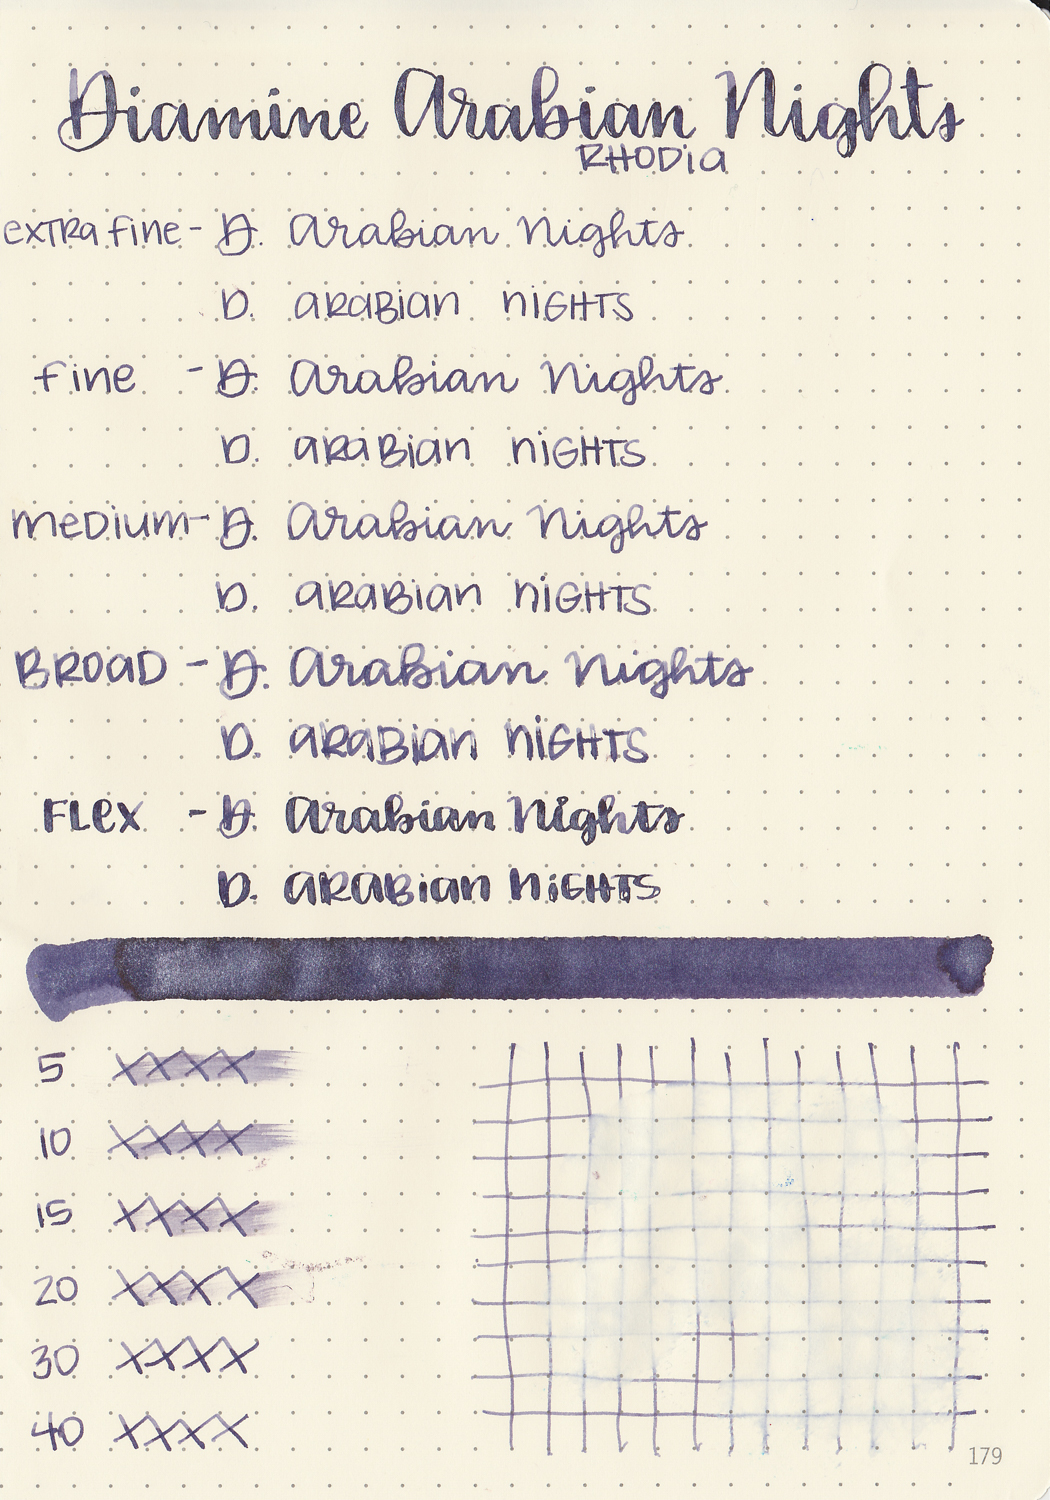 Diamine Arabian Nights
RHODia
exTRa fine - D. Arabian Nights
D. aRaBian niGHTS
fine - D. Arabian Nights
D. aRaBian niGHTS
meDium - D. Arabian Nights
D. aRaBian niGHTS
BROaD - D. Arabian Nights
D. aRaBian niGHTS
FLex - D. Arabian Nights
D. aRaBian niGHTS
5 XXXX
10 XXXX
15 XXXX
20 XXXX
30 XXXX
40 XXXX
179